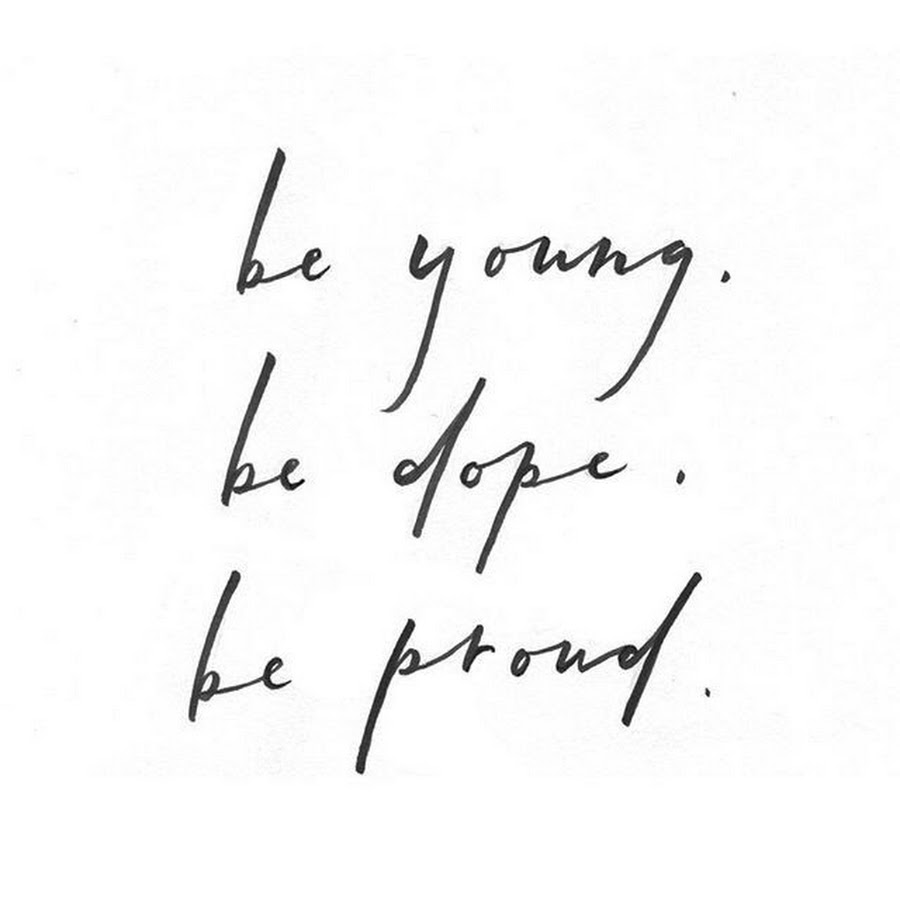 be young.
be dope.
be proud.